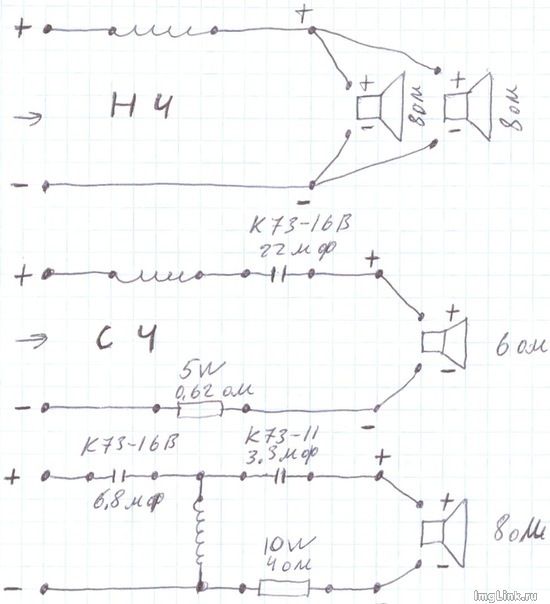 + +
НЧ
+ +
8 ом
8 ом
- -
-
-
К73-16В
22 мф
+ +
+
СЧ
6 ом
5W
0,62 ом
-
-
-
К73-16В
К73-11
6,8 мф
3,3 мф
+ +
+
8 ом
10W
4 ом
-
-
ImgLink.ru